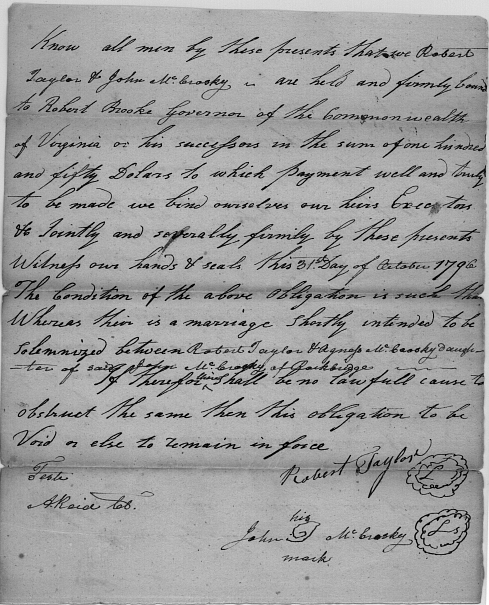 Know all men by these presents that we Robert
Taylor & John McCrosky are held and firmly bound
to Robert Brooke Governor of the Commonwealth
of Virginia or his successors in the sum of one hundred
and fifty Dolars to which payment well and truly
to be made we bind ourselves our heirs Execetors
&c Jointly and severally firmily by these presents
Witness our hands & seals this 31st Day of October 1796
The Condition of the above obligation is such tha
Whereas their is a marriage shortly intended to be
Solemnized between Robert Taylor & Agness McCrosky daugh-
-ter of said John McCrosky of Rockbridge
If therefor there shall be no lawfull cause to
obstruct the same then this obligation to be
Void or else to remain in force
Teste
Robert Taylor
A Reid
his
John McCrosky Ls
mark